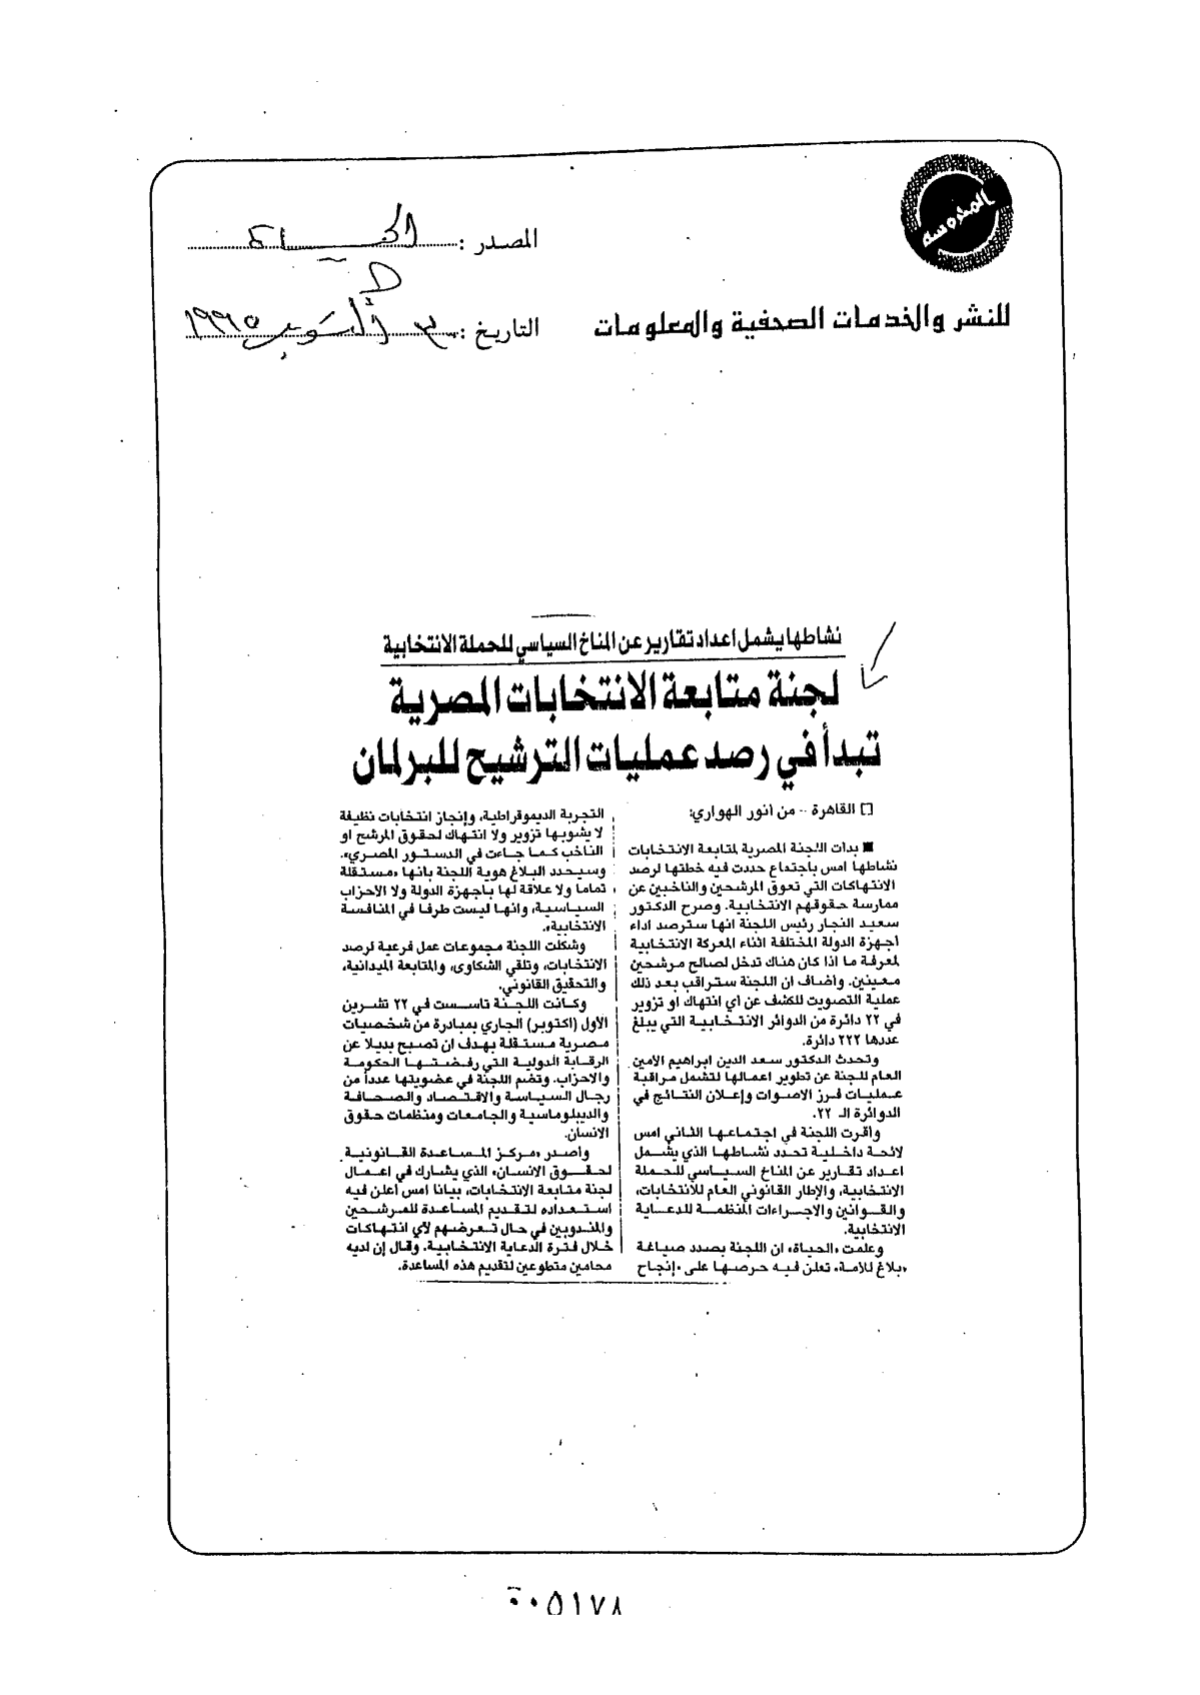 المحروسة
المصدر : الحياة
للنشر والخدمات الصحفية والمعلومات
التاريخ : أكتوبر ١٩٩٥
نشاطها يشمل اعداد تقارير عن المناخ السياسي للحملة الانتخابية
لجنة متابعة الانتخابات المصرية
تبدأ في رصد عمليات الترشيح للبرلمان
□ القاهرة - من أنور الهواري:
■ بدأت اللجنة المصرية لمتابعة الانتخابات
نشاطها امس باجتماع حددت فيه خطتها لرصد
الانتهاكات التي تعوق المرشحين والناخبين عن
ممارسة حقوقهم الانتخابية. وصرح الدكتور
سعيد النجار رئيس اللجنة انها سترصد اداء
اجهزة الدولة المختلفة اثناء المعركة الانتخابية
لمعرفة ما اذا كان هناك تدخل لصالح مرشحين
معينين. واضاف ان اللجنة ستراقب بعد ذلك
عملية التصويت للكشف عن أي انتهاك او تزوير
في ٢٢ دائرة من الدوائر الانتخابية التي يبلغ
عددها ٢٢٢ دائرة.
وتحدث الدكتور سعد الدين ابراهيم الأمين
العام للجنة عن تطوير اعمالها لتشمل مراقبة
عمليات فرز الاصوات وإعلان النتائج في
الدوائرة الـ ٢٢.
واقرت اللجنة في اجتماعها الثاني امس
لائحة داخلية تحدد نشاطها الذي يشمل
اعداد تقارير عن المناخ السياسي للحملة
الانتخابية، والإطار القانوني العام للانتخابات،
والقوانين والاجراءات المنظمة للدعاية
الانتخابية.
وعلمت «الحياة» ان اللجنة بصدد صياغة
«بلاغ للأمة» تعلن فيه حرصها على «إنجاح
التجربة الديموقراطية، وإنجاز انتخابات نظيفة
لا يشوبها تزوير ولا انتهاك لحقوق المرشح او
الناخب كما جاءت في الدستور المصري».
وسيحدد البلاغ هوية اللجنة بانها «مستقلة
تماما ولا علاقة لها باجهزة الدولة ولا الاحزاب
السياسية، وانها ليست طرفا في المنافسة
الانتخابية».
وشكلت اللجنة مجموعات عمل فرعية لرصد
الانتخابات، وتلقي الشكاوى، والمتابعة الميدانية،
والتحقيق القانوني.
وكانت اللجنة تأسست في ٢٢ تشرين
الاول (اكتوبر) الجاري بمبادرة من شخصيات
مصرية مستقلة بهدف ان تصبح بديلا عن
الرقابة الدولية التي رفضتها الحكومة
والاحزاب. وتضم اللجنة في عضويتها عدداً من
رجال السياسة والاقتصاد والصحافة
والديبلوماسية والجامعات ومنظمات حقوق
الانسان.
واصدر «مركز المساعدة القانونية
لحقوق الانسان» الذي يشارك في اعمال
لجنة متابعة الانتخابات، بيانا امس أعلن فيه
استعداده لتقديم المساعدة للمرشحين
والمندوبين في حال تعرضهم لأي انتهاكات
خلال فترة الدعاية الانتخابية. وقال إن لديه
محامين متطوعين لتقديم هذه المساعدة.
٠٠٥١٧٨